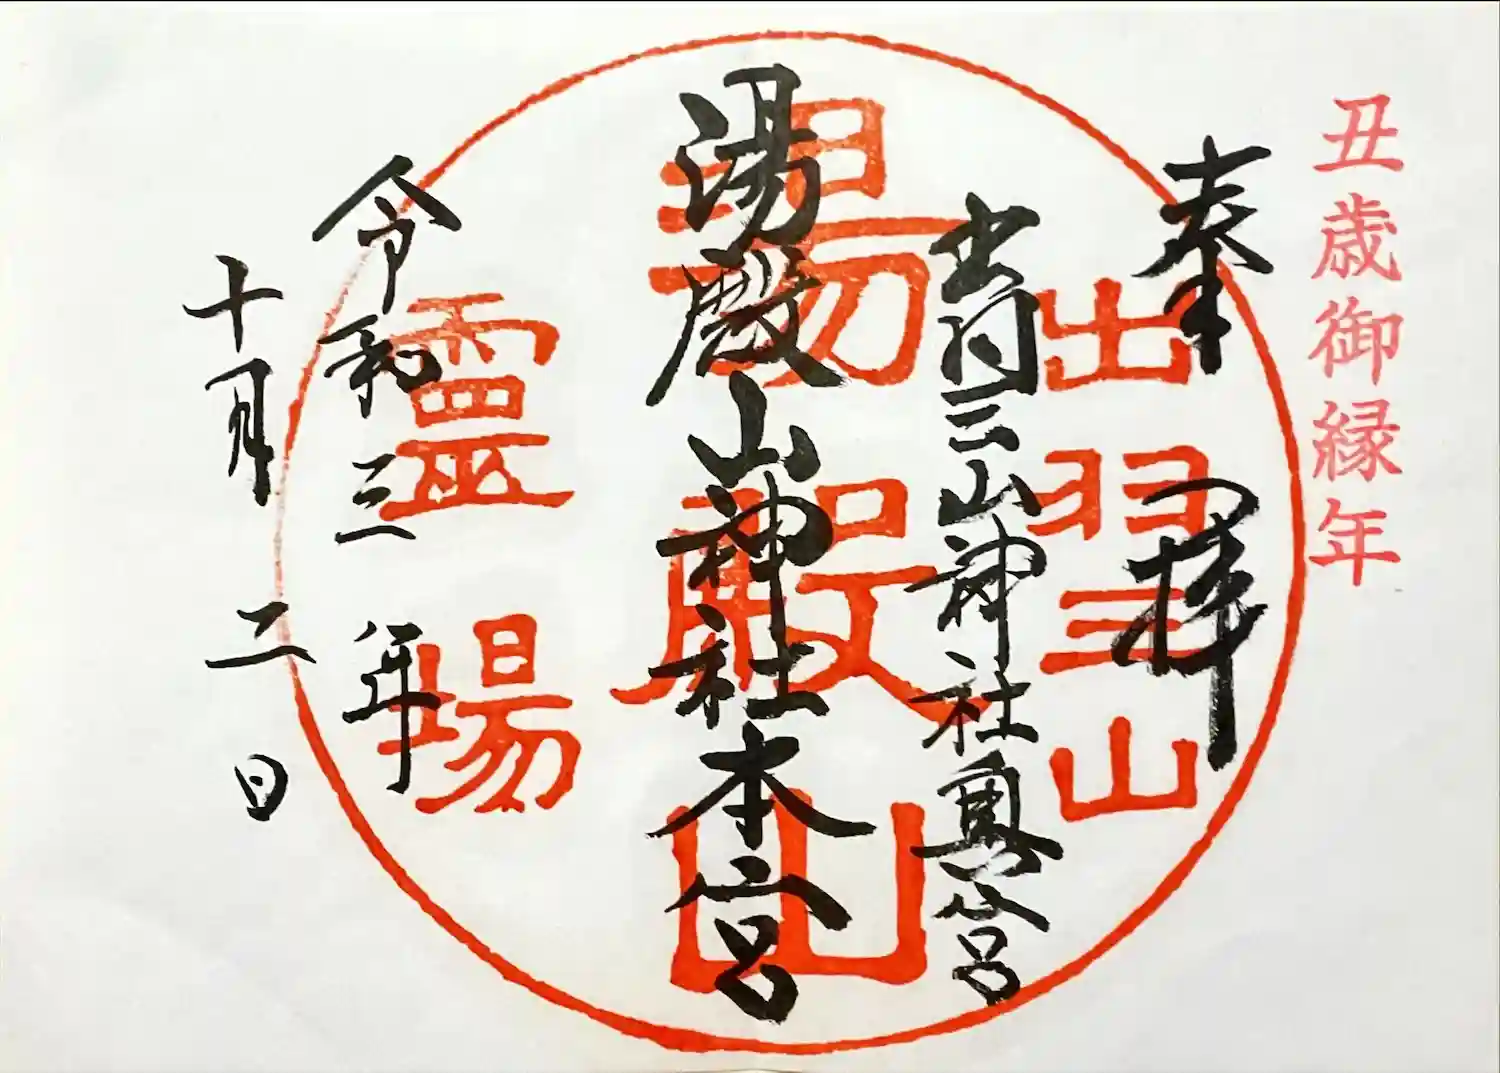 丑歳御縁年
奉拝
出羽三山
出羽三山神社奥宮
湯殿山
湯殿山神社本宮
靈場
令和三年
十月二日